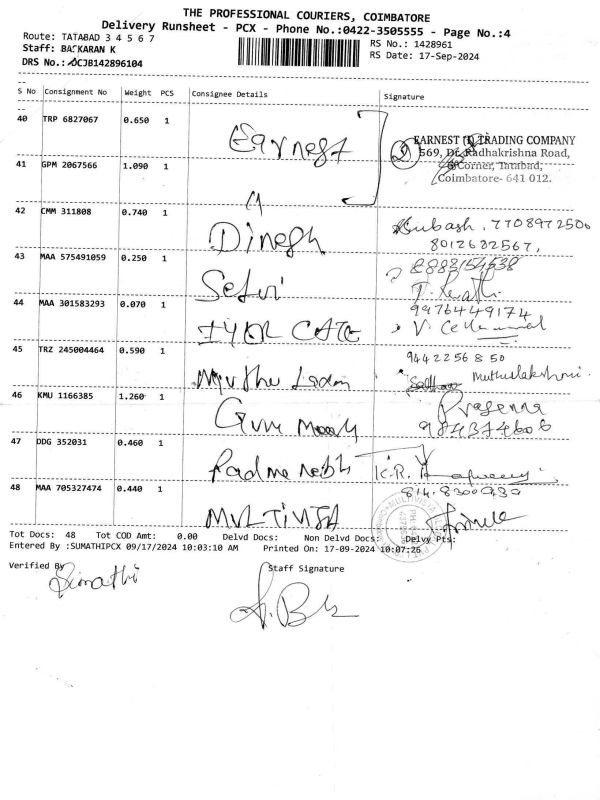 THE PROFESSIONAL COURIERS, COIMBATORE
Delivery Runsheet - PCX - Phone No.:0422-3505555 - Page No.:4
Route: TATABAD 3 4 5 6 7
RS No.: 1428961
Staff: BASKARAN K
RS Date: 17-Sep-2024
DRS No.: DCJB142896104
S No Consignment No Weight PCS Consignee Details Signature
40 TRP 6827067 0.650 1 Earnest
EARNEST TRADING COMPANY
569, Dr. Radhakrishna Road,
Corner, Tatabad,
Coimbatore- 641 012.
41 GPM 2067566 1.090 1
42 CMM 311808 0.740 1 Dinesh
Subash. 7708972500
8012682567,
43 MAA 575491059 0.250 1 Selvi
8883154538
44 MAA 301583293 0.070 1 IYER CATE
9976449174
45 TRZ 245004464 0.590 1 Muthu
9442256850
Muthulakshmi
46 KMU 1166385 1.260 1 Guru
Prasanna
9843744606
47 DDG 352031 0.460 1 Padma
K.R.
48 MAA 705327474 0.440 1 MULTIVISTA
Tot Docs: 48 Tot COD Amt: 0.00 Delvd Docs: Non Delvd Docs: Delvy Pts:
Entered By :SUMATHIPCX 09/17/2024 10:03:10 AM Printed On: 17-09-2024 10:07:26
Verified By Staff Signature
Sumathi